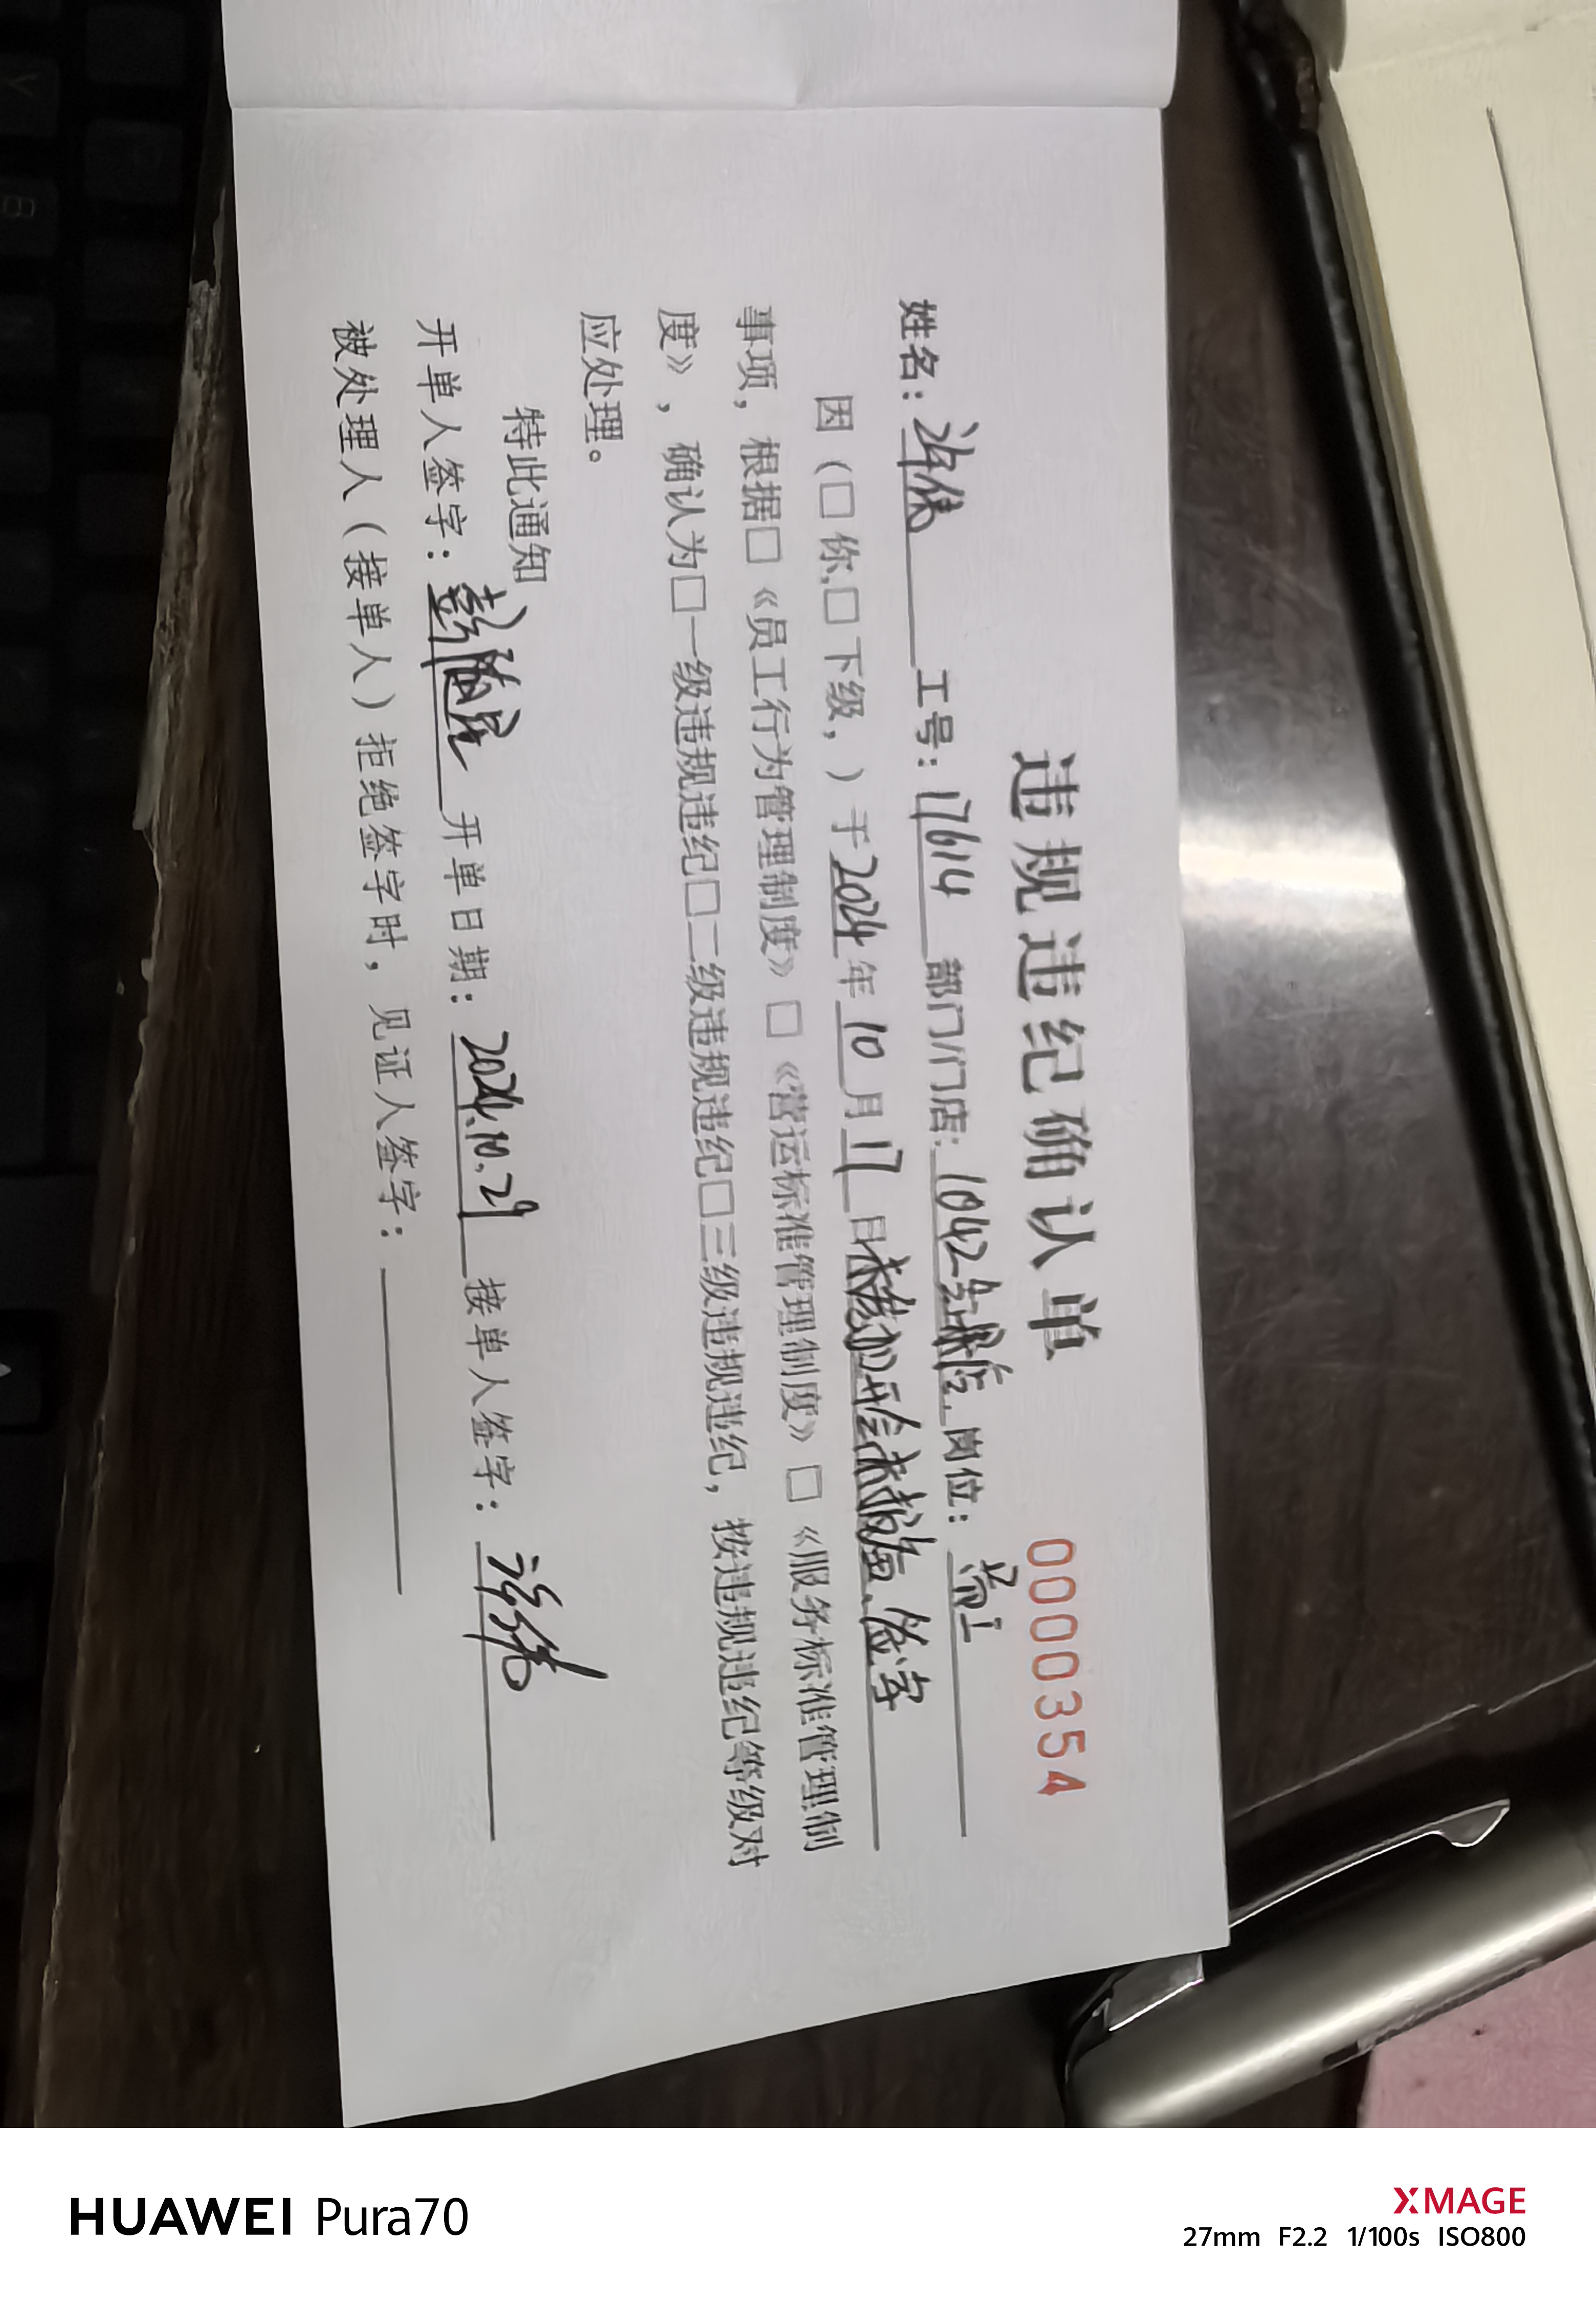 违规违纪确认单 0000354
姓名：许伟 工号：17614 部门/门店：1042 店 岗位：
因（□你,□下级，）于2024年10月17日未参加开会未报备、签字
事项，根据□《员工行为管理制度》□《营运标准管理制度》□《服务标准管理制
度》，确认为□一级违规违纪□二级违规违纪□三级违规违纪，按违规违纪等级对
应处理。
特此通知
开单人签字：彭 开单日期：2024.10.29 接单人签字：许伟
被处理人（接单人）拒绝签字时，见证人签字：
HUAWEI Pura70
XMAGE
27mm F2.2 1/100s ISO800